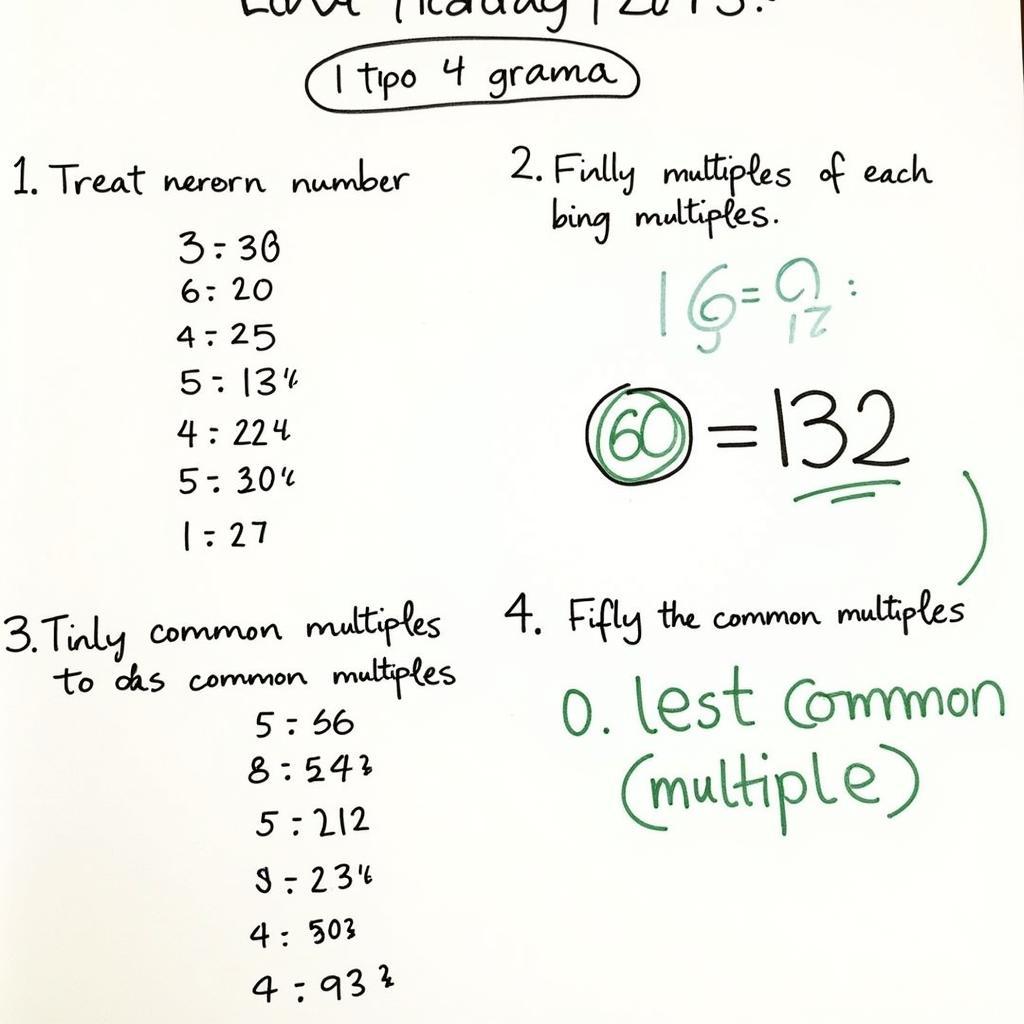 1 tipo 4 grama
1. Treat nerorn number
3 ÷ 30
6 : 20
4 ÷ 25
5 ÷ 13
4 ÷ 224
5 ÷ 30
1 ÷ 27
2. Finlly multiples of each
bing multiples.
16 =
12
60 = 132
3. Tinly common multiples
to das common multiples
5 : 56
8 : 543
5 ÷ 212
÷ 23
4 : 503
4 ÷ 93
4. Fifly the common multiples
0. lest common
(multiple)